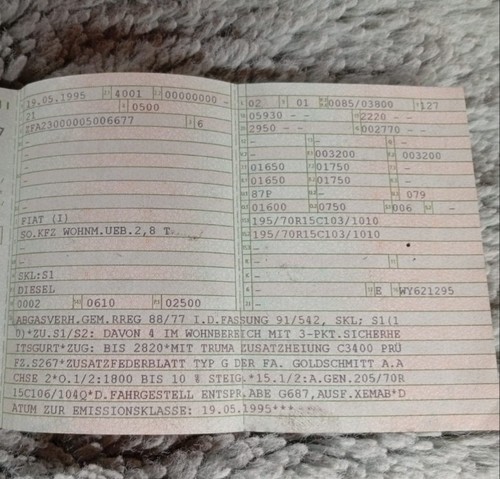 19.05.1995 4001 00000000 -
21 0500
ZFA23000005006677 6
-
-
-
-
-
FIAT (I)
SO.KFZ WOHNM.UEB.2,8 T
-
-
SKL:S1
DIESEL
0002 0610 02500
02 01 0085/03800 127
05930 - - 2220 - -
2950 - - 002770 - -
- - -
- 003200 003200
01650 01750 -
01650 01750 -
87P - 079
01600 0750 006 -
195/70R15C103/1010
195/70R15C103/1010
-
-
-
- E WY621295
-
ABGASVERH.GEM.RREG 88/77 I.D.FASSUNG 91/542, SKL; S1(1
0)*ZU.S1/S2: DAVON 4 IM WOHNBEREICH MIT 3-PKT.SICHERHE
ITSGURT*ZUG: BIS 2820*MIT TRUMA ZUSATZHEIZUNG C3400 PRÜ
FZ.S267*ZUSATZFEDERBLATT TYP G DER FA. GOLDSCHMITT A.A
CHSE 2*O.1/2:1800 BIS 10 % STEIG.*15.1/2:A.GEN.205/70R
15C106/104Q*D.FAHRGESTELL ENTSPR.ABE G687,AUSF.XEMAB*D
ATUM ZUR EMISSIONSKLASSE: 19.05.1995***